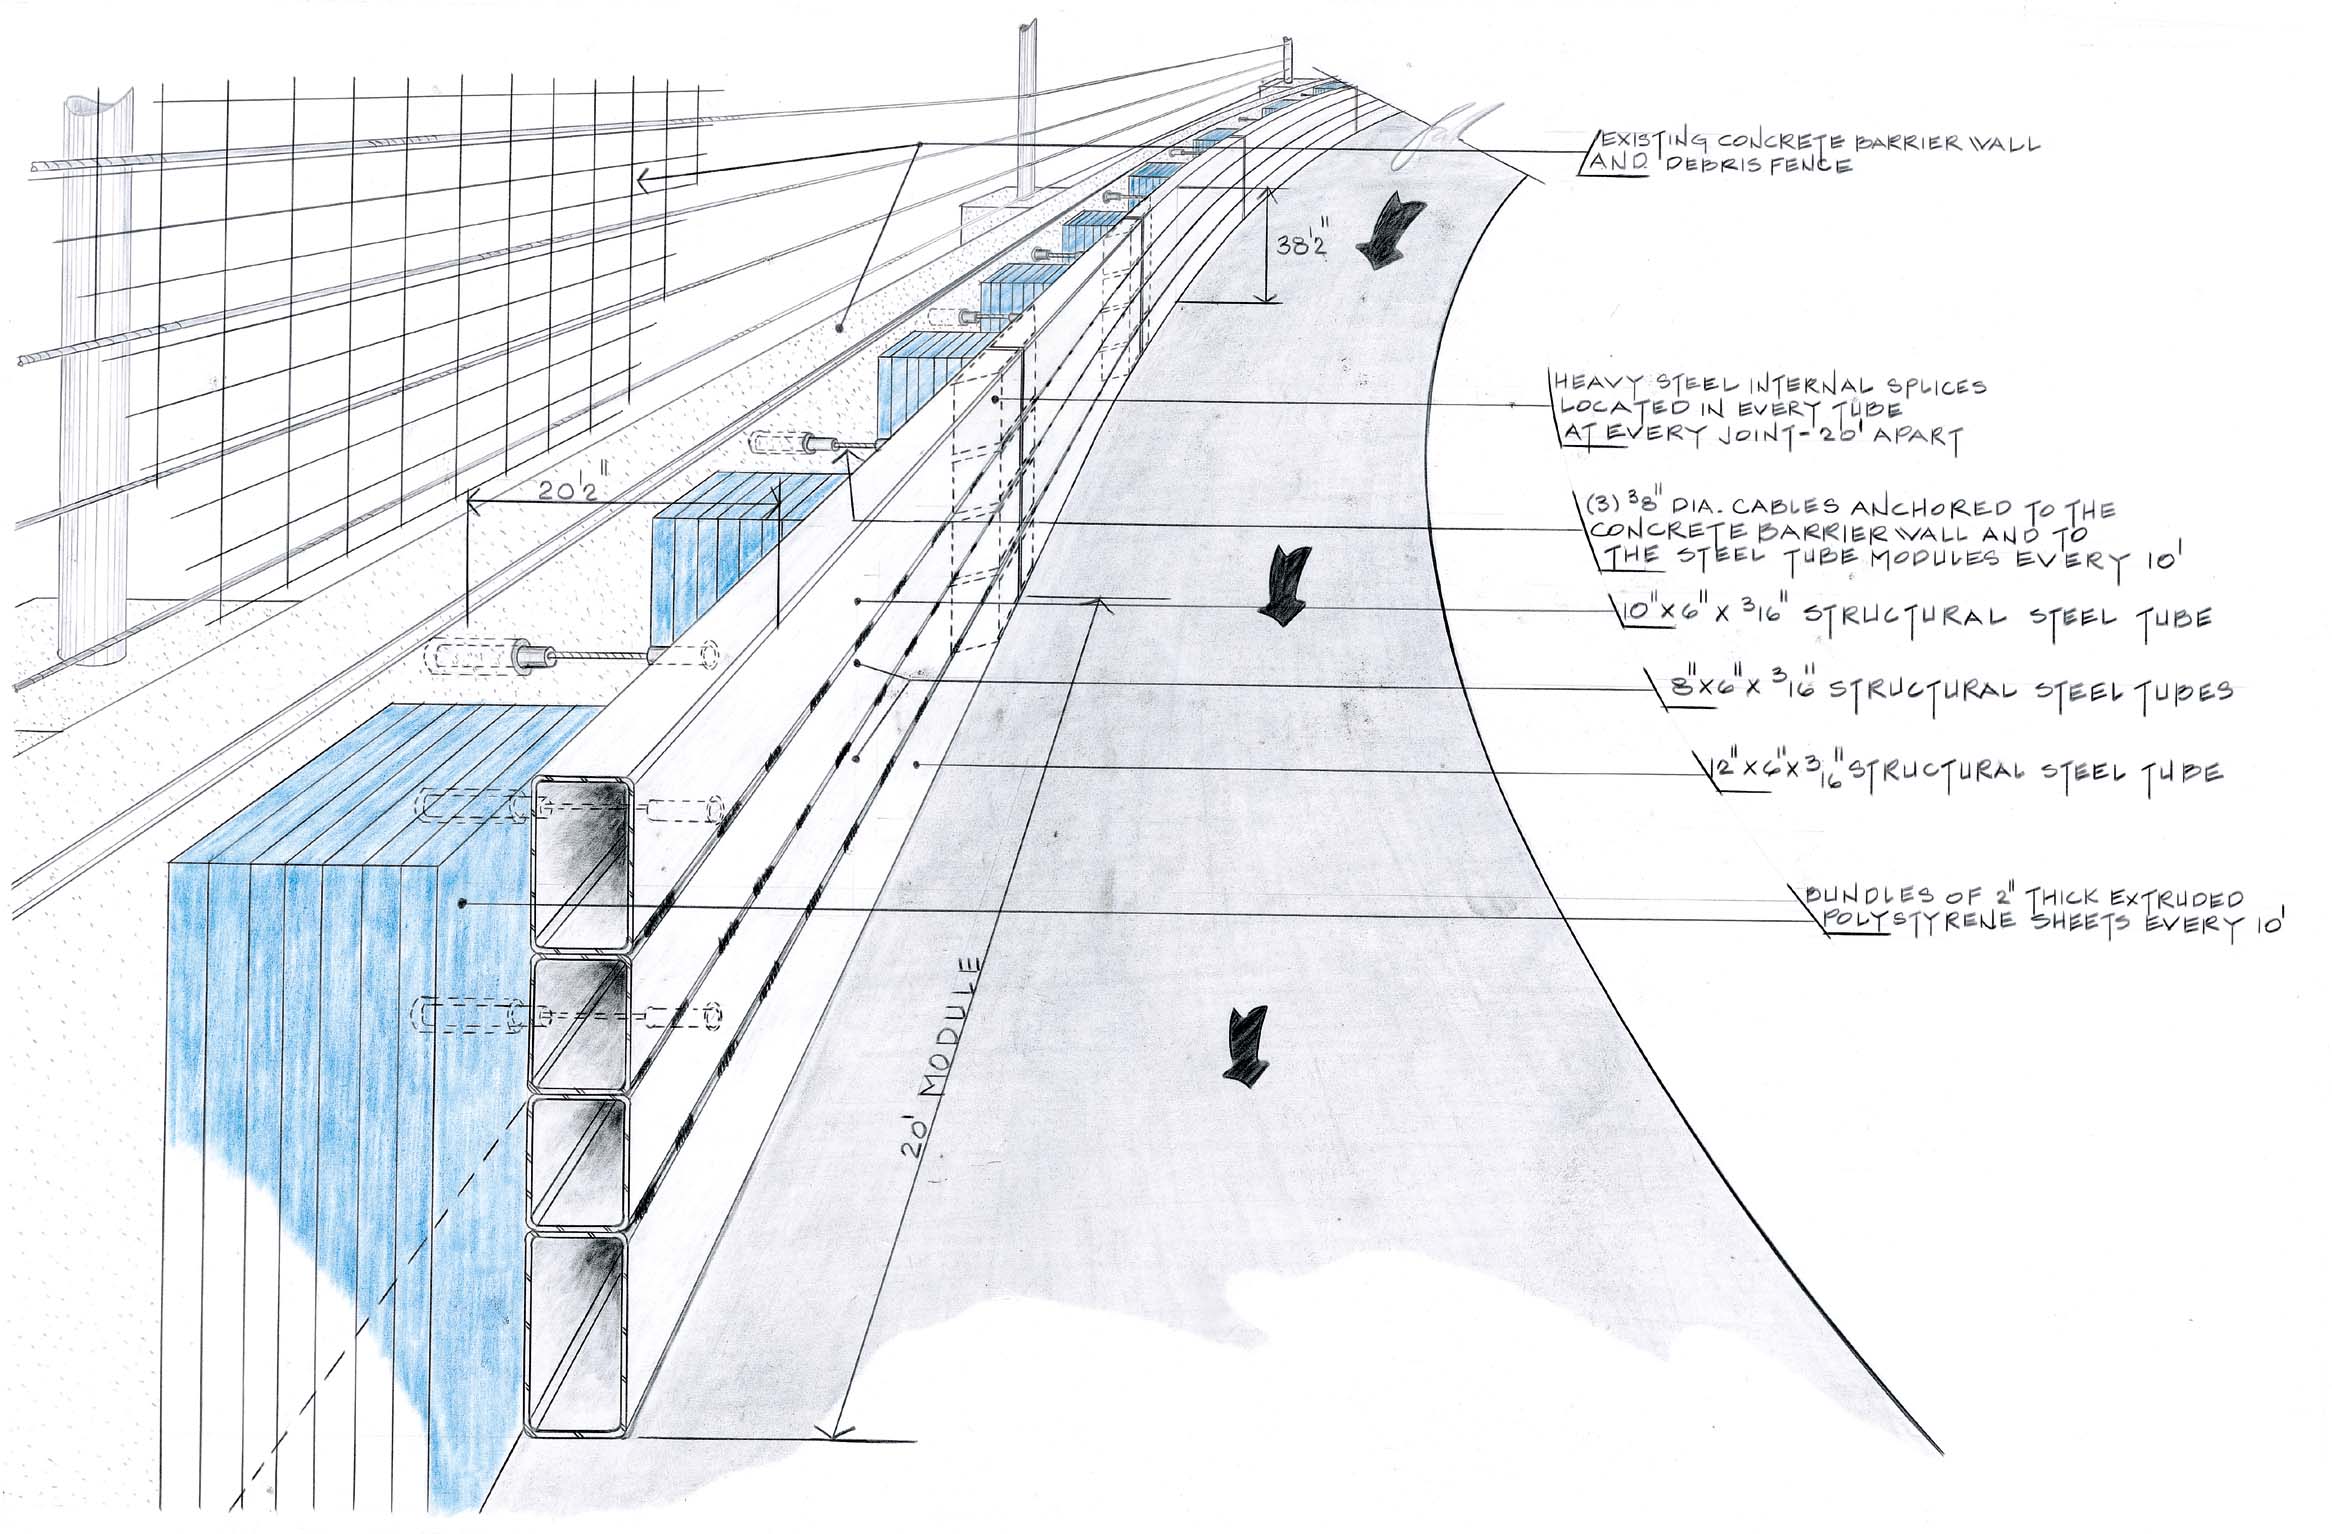 EXISTING CONCRETE BARRIER WALL
AND DEBRIS FENCE
38 1/2"
HEAVY STEEL INTERNAL SPLICES
LOCATED IN EVERY TUBE
AT EVERY JOINT-20' APART
20 1/2"
(3) 3/8" DIA. CABLES ANCHORED TO THE
CONCRETE BARRIER WALL AND TO
THE STEEL TUBE MODULES EVERY 10'
10"X6"X 3/16" STRUCTURAL STEEL TUBE
8"X6"X 3/16" STRUCTURAL STEEL TUBES
12"X6"X3/16" STRUCTURAL STEEL TUBE
BUNDLES OF 2" THICK EXTRUDED
POLYSTYRENE SHEETS EVERY 10'
20' MODULE